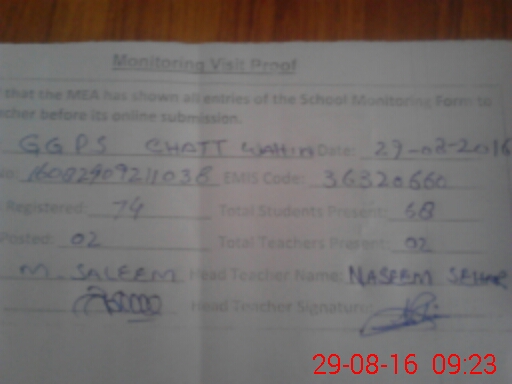 Monitoring Visit Proof
that the MEA has shown all entries of the School Monitoring Form to
before its online submission.
GGPS CHATT Date: 29-08-2016
EMIS Code: 36320660
Registered: 74 Total Students Present: 68
Posted: 02 Total Teachers Present: 02
M. SALEEM Head Teacher Name: NASEEM
Head Teacher Signature:
29-08-16 09:23